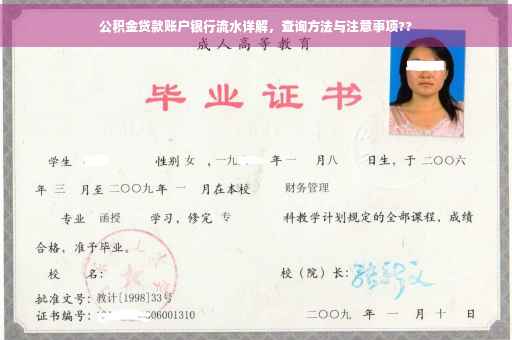 公积金贷款账户银行流水详解，查询方法与注意事项??
成人高等教育
毕业证书
学生 性别 女 ，一九 年 一 月八 日生，于 二〇〇六
年 三 月至 二〇〇九 年 一 月在本校 财务管理
专业 函授 学习，修完 专 科教学计划规定的全部课程，成绩
合格，准予毕业。
校 名： 校（院）长：
批准文号：教计[1998]33号
证书编号： 06001310 二〇〇九 年 一 月 十 日